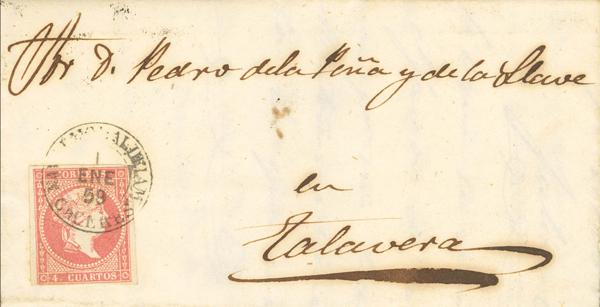 Sr D. Pedro de la Peña y de la Llave
en
Talavera
ENE
59
CACERES
CORREOS
4. CUARTOS